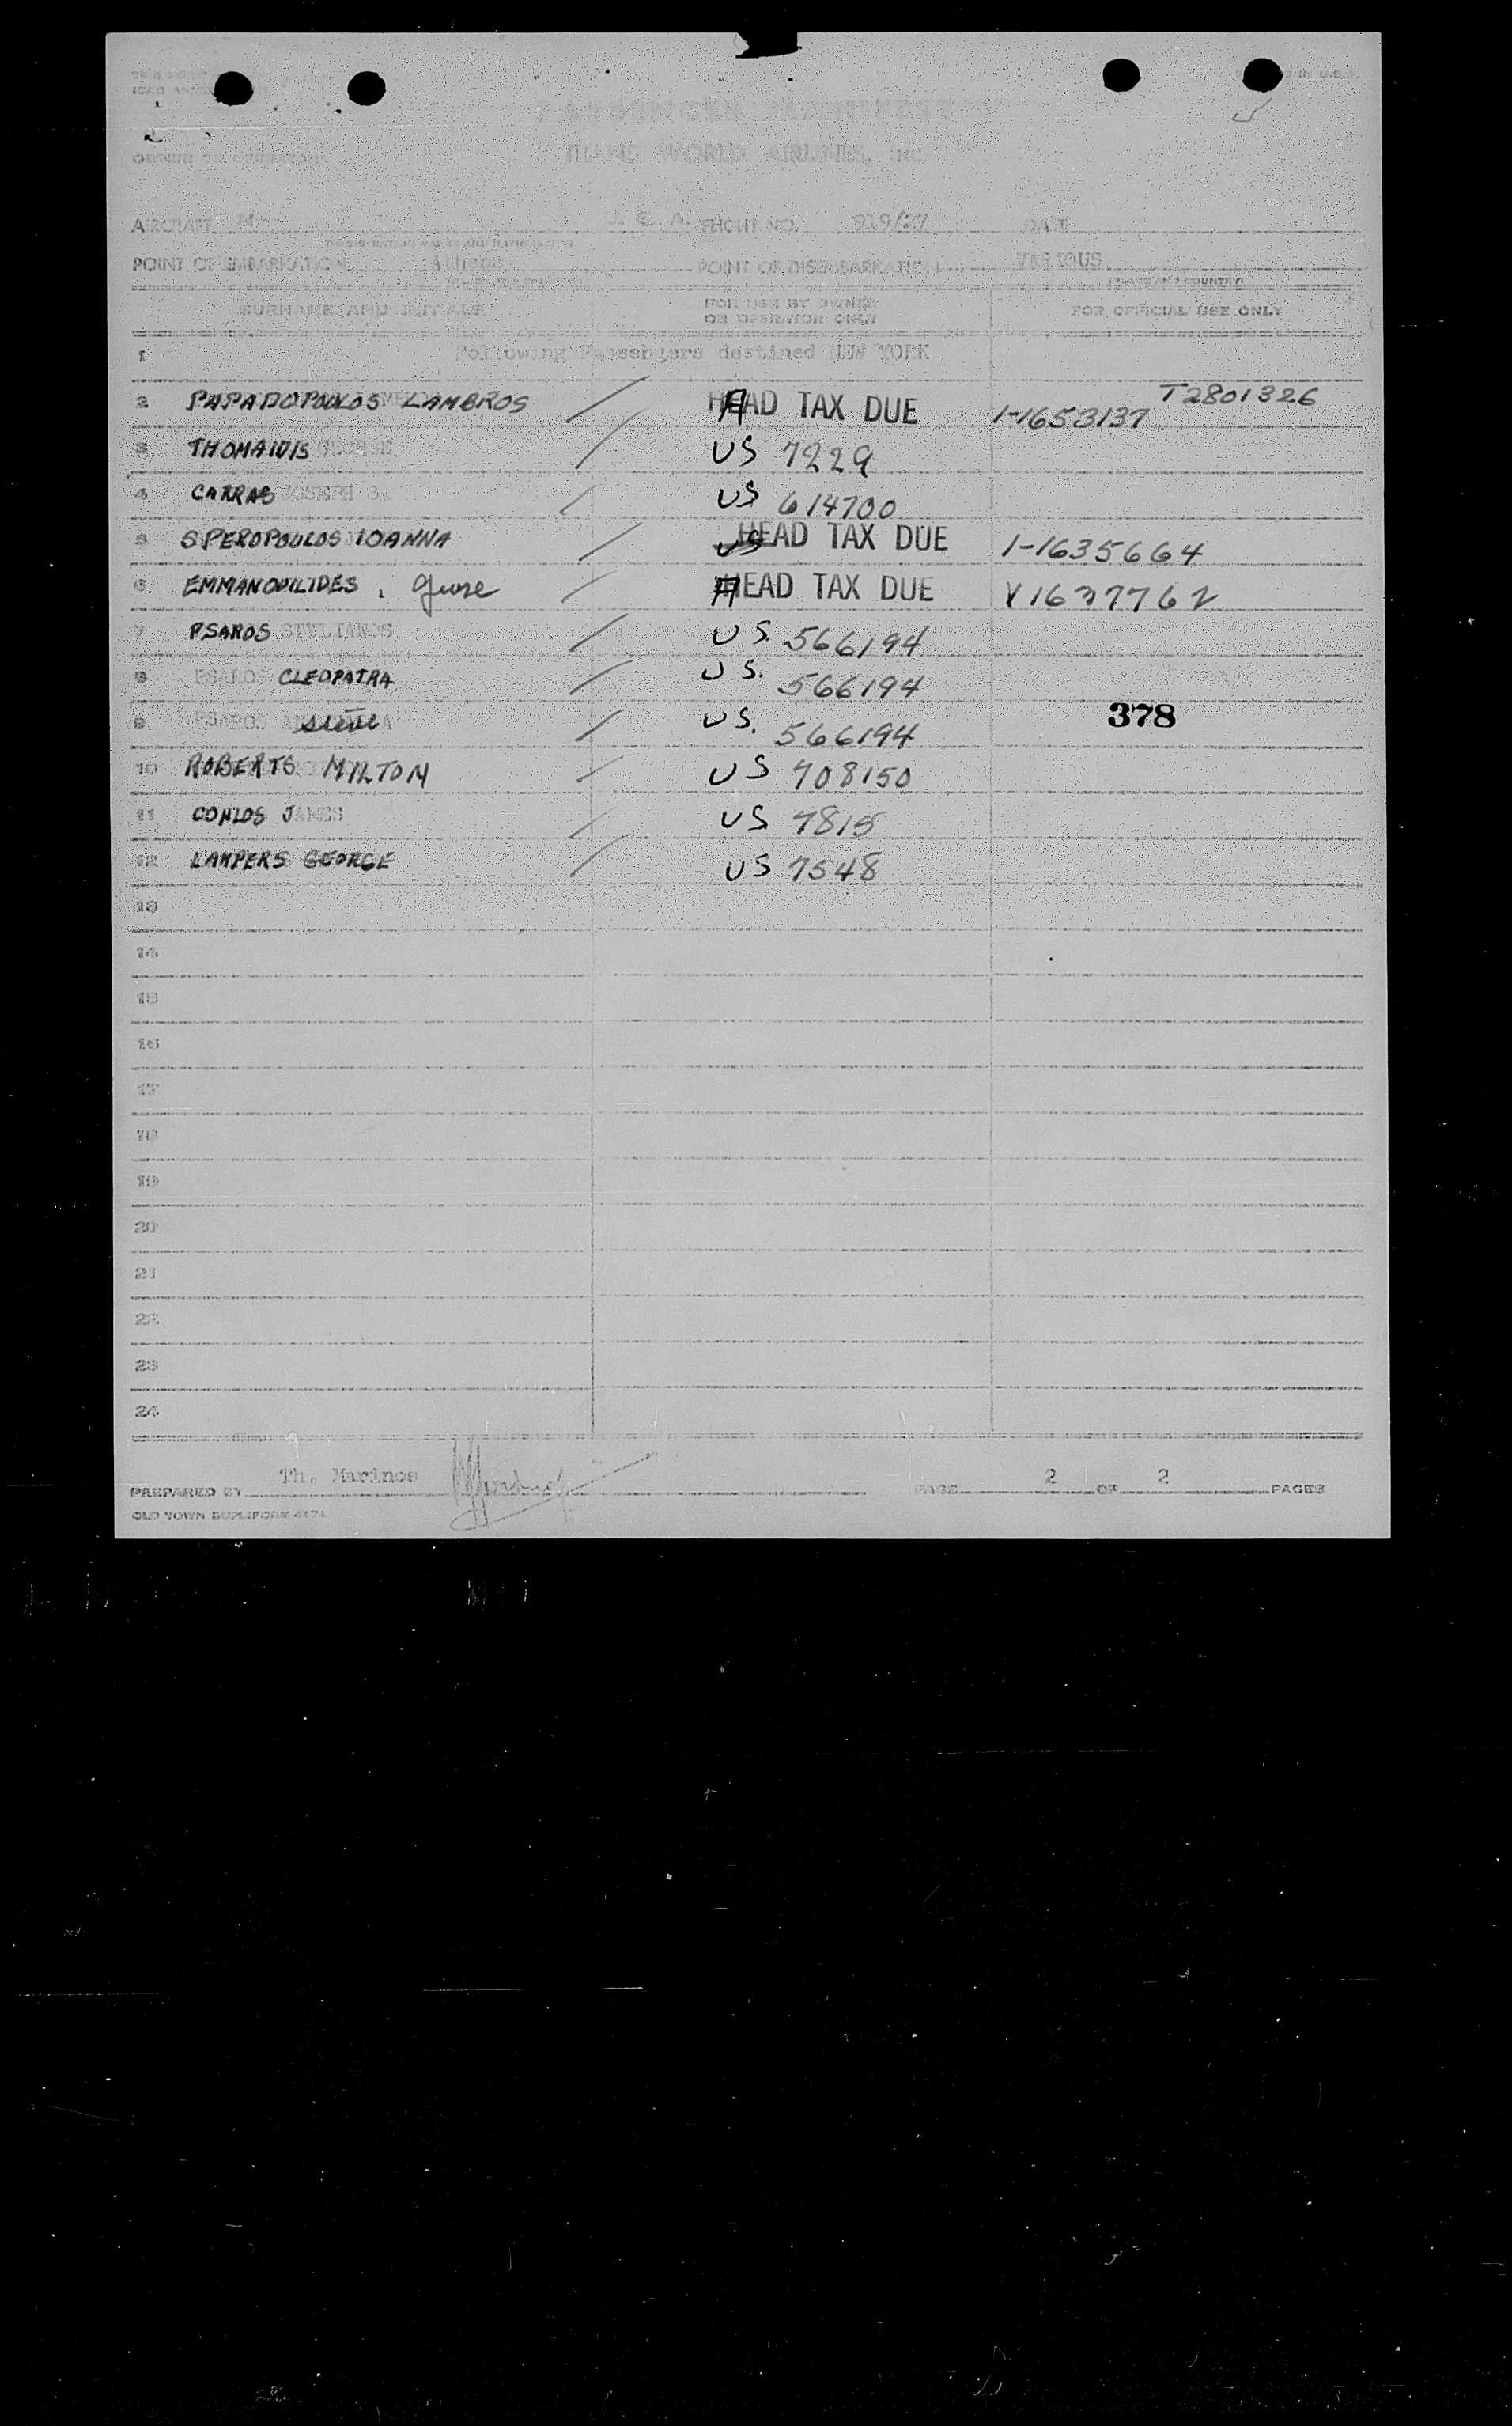 PASSENGER MANIFEST
OWNER OR OPERATOR TRANS WORLD AIRLINES, INC.
AIRCRAFT N- U. S. A. FLIGHT NO. 919/27 DATE
POINT OF EMBARKATION Athens POINT OF DISEMBARKATION VARIOUS
SURNAME AND INITIALS FOR USE BY OWNER OR OPERATOR ONLY FOR OFFICIAL USE ONLY
1 Following Passengers destined NEW YORK
2 PAPADOPOULOS LAMBROS / HEAD TAX DUE 1-1653137 T2801326
3 THOMAIDIS GEORGE / US 7229
4 CARRAS JOSEPH G. / US 614700
5 SPEROPOULOS IOANNA / HEAD TAX DUE 1-1635664
6 EMMANOUILIDES, / HEAD TAX DUE V1637762
7 PSAROS STYLIANOS / US. 566194
8 PSAROS CLEOPATRA / US. 566194
9 PSAROS / US. 566194 378
10 ROBERTS MILTON / US 708150
11 CONLOS JAMES / US 7815
12 LAMPERS GEORGE / US 7548
13
14
15
16
17
18
19
20
21
22
23
24
PREPARED BY Th. Marinos PAGE 2 OF 2 PAGES
OLD TOWN DUPLIFORM 4471